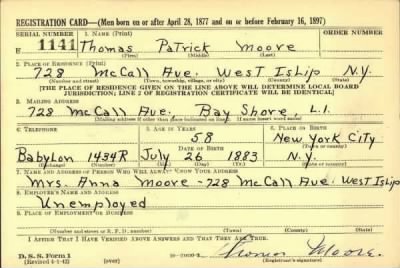 REGISTRATION CARD—(Men born on or after April 28, 1877 and on or before February 16, 1897)
SERIAL NUMBER 1. NAME (Print) ORDER NUMBER
U 1141 Thomas Patrick Moore
(First) (Middle) (Last)
2. PLACE OF RESIDENCE (Print)
728 McCall Ave. West Islip N.Y.
(Number and street) (Town, township, village, or city) (County) (State)
[THE PLACE OF RESIDENCE GIVEN ON THE LINE ABOVE WILL DETERMINE LOCAL BOARD
JURISDICTION; LINE 2 OF REGISTRATION CERTIFICATE WILL BE IDENTICAL]
3. MAILING ADDRESS
728 McCall Ave. Bay Shore, L.I.
[Mailing address if other than place indicated on line 2. If same insert word same]
4. TELEPHONE 5. AGE IN YEARS 6. PLACE OF BIRTH
58 New York City
DATE OF BIRTH (Town or county)
Babylon 1434R July 26 1883 N.Y.
(Exchange) (Number) (Mo.) (Day) (Yr.) (State or country)
7. NAME AND ADDRESS OF PERSON WHO WILL ALWAYS KNOW YOUR ADDRESS
Mrs. Anna Moore - 728 McCall Ave. West Islip
8. EMPLOYER'S NAME AND ADDRESS
Unemployed
9. PLACE OF EMPLOYMENT OR BUSINESS
(Number and street or R. F. D. number) (Town) (County) (State)
I AFFIRM THAT I HAVE VERIFIED ABOVE ANSWERS AND THAT THEY ARE TRUE.
D. S. S. Form 1
(Revised 4-1-42) (over) Thomas Moore
(Registrant's signature)